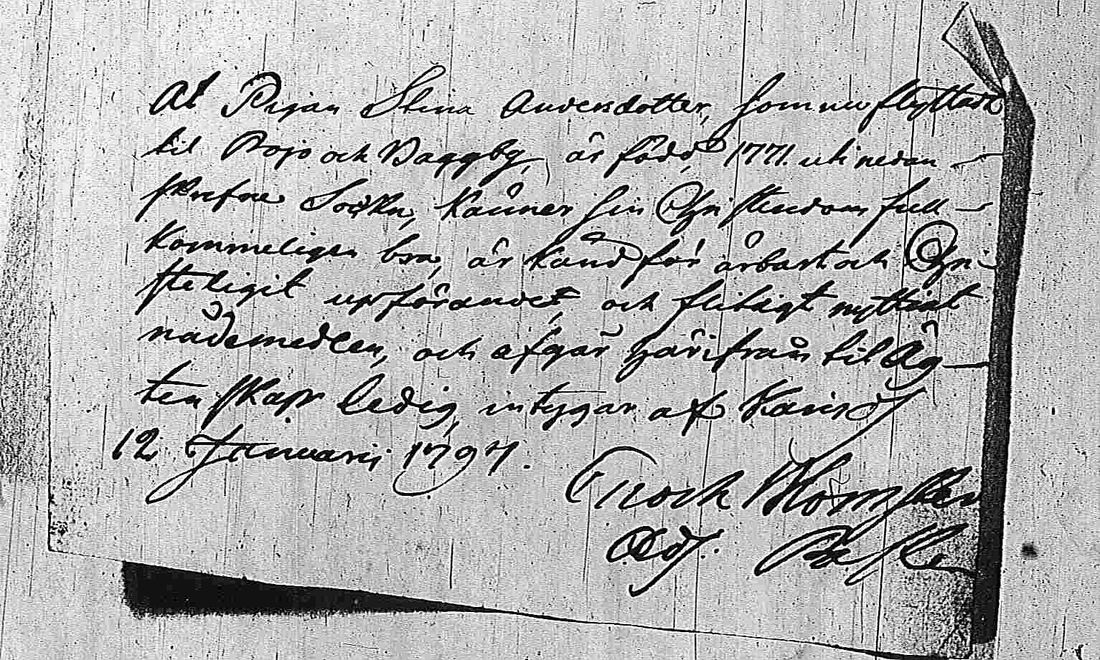 At Pigan Stina Andersdotter, som nu flyttar
til Pojo och Baggby, är född 1771. uti nedan
skrefne Sockn, känner sin Christendom full
kommeligen bra, är känd för ärbart och Chri-
steligit upförande, och flitigt nyttjat
nådemedlen, och afgår härifrån til Äg
tenskap ledig, intygar af Karis d.
12 Januarii 1797.
Enoch
Adj. Past